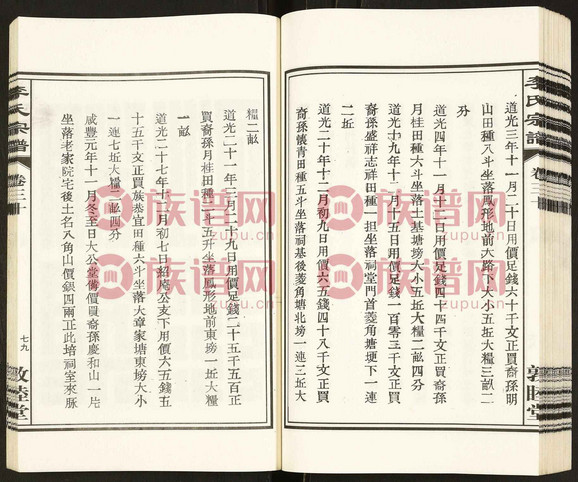 李氏宗譜
卷三十
敦睦堂
道光三年十一月二十日用價足錢六十千文正買裔孫明
山田種八斗坐落鳳形地前大路下大小五坵大糧三畝二
分
道光四年十一月十二日用價足錢四十四千文正買裔孫
月桂田種六斗坐落土基塘塝大小五坵大糧二畝四分
道光十九年十一月十五日用價足錢一百零三千文正買
裔孫盛祥志祥田種一担坐落祠堂門首菱角塘埂下一連
二坵
道光二十年十二月初九日用價六五足錢四十八千文買
裔孫懷青田種五斗坐落祠基後菱角塘北塝一連三坵大
糧二畝
道光二十一年三月二十九日用價足錢二十五千五百正
買裔孫月桂田種二斗五升坐落鳳形地前東塝一坵大糧
一畝
道光二十七年十二月初七日紹庵公支下用價六五錢五
十五千文正買族恭宜田種六斗坐落大章家塘東塝大小
一連七坵大糧二畝四分
咸豐元年十一月冬至日大公堂備價買裔孫慶和山一片
坐落老家院宅後土名入角山價銀四兩正此培祠室來脉
李氏宗譜
卷三十
七九
敦睦堂
族谱网
zupu.cn
族谱网
zupu.cn
族谱网
zupu.cn
族谱网
zupu.cn